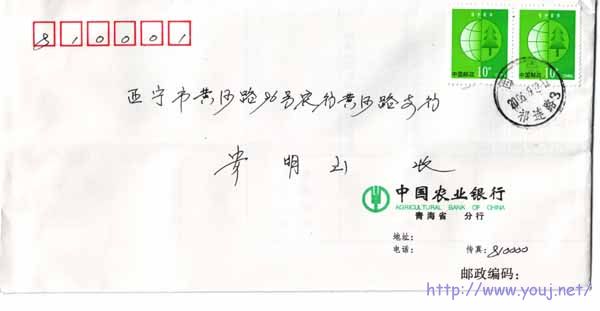 810001
中国邮政 10分
中国邮政 10分
西宁市黄河路96号农行黄河路支行
祁连路3
明 收
中国农业银行
AGRICULTURAL BANK OF CHINA
青海省 分行
地址:
电话: 传真: 810000
邮政编码:
http://www.youj.net/